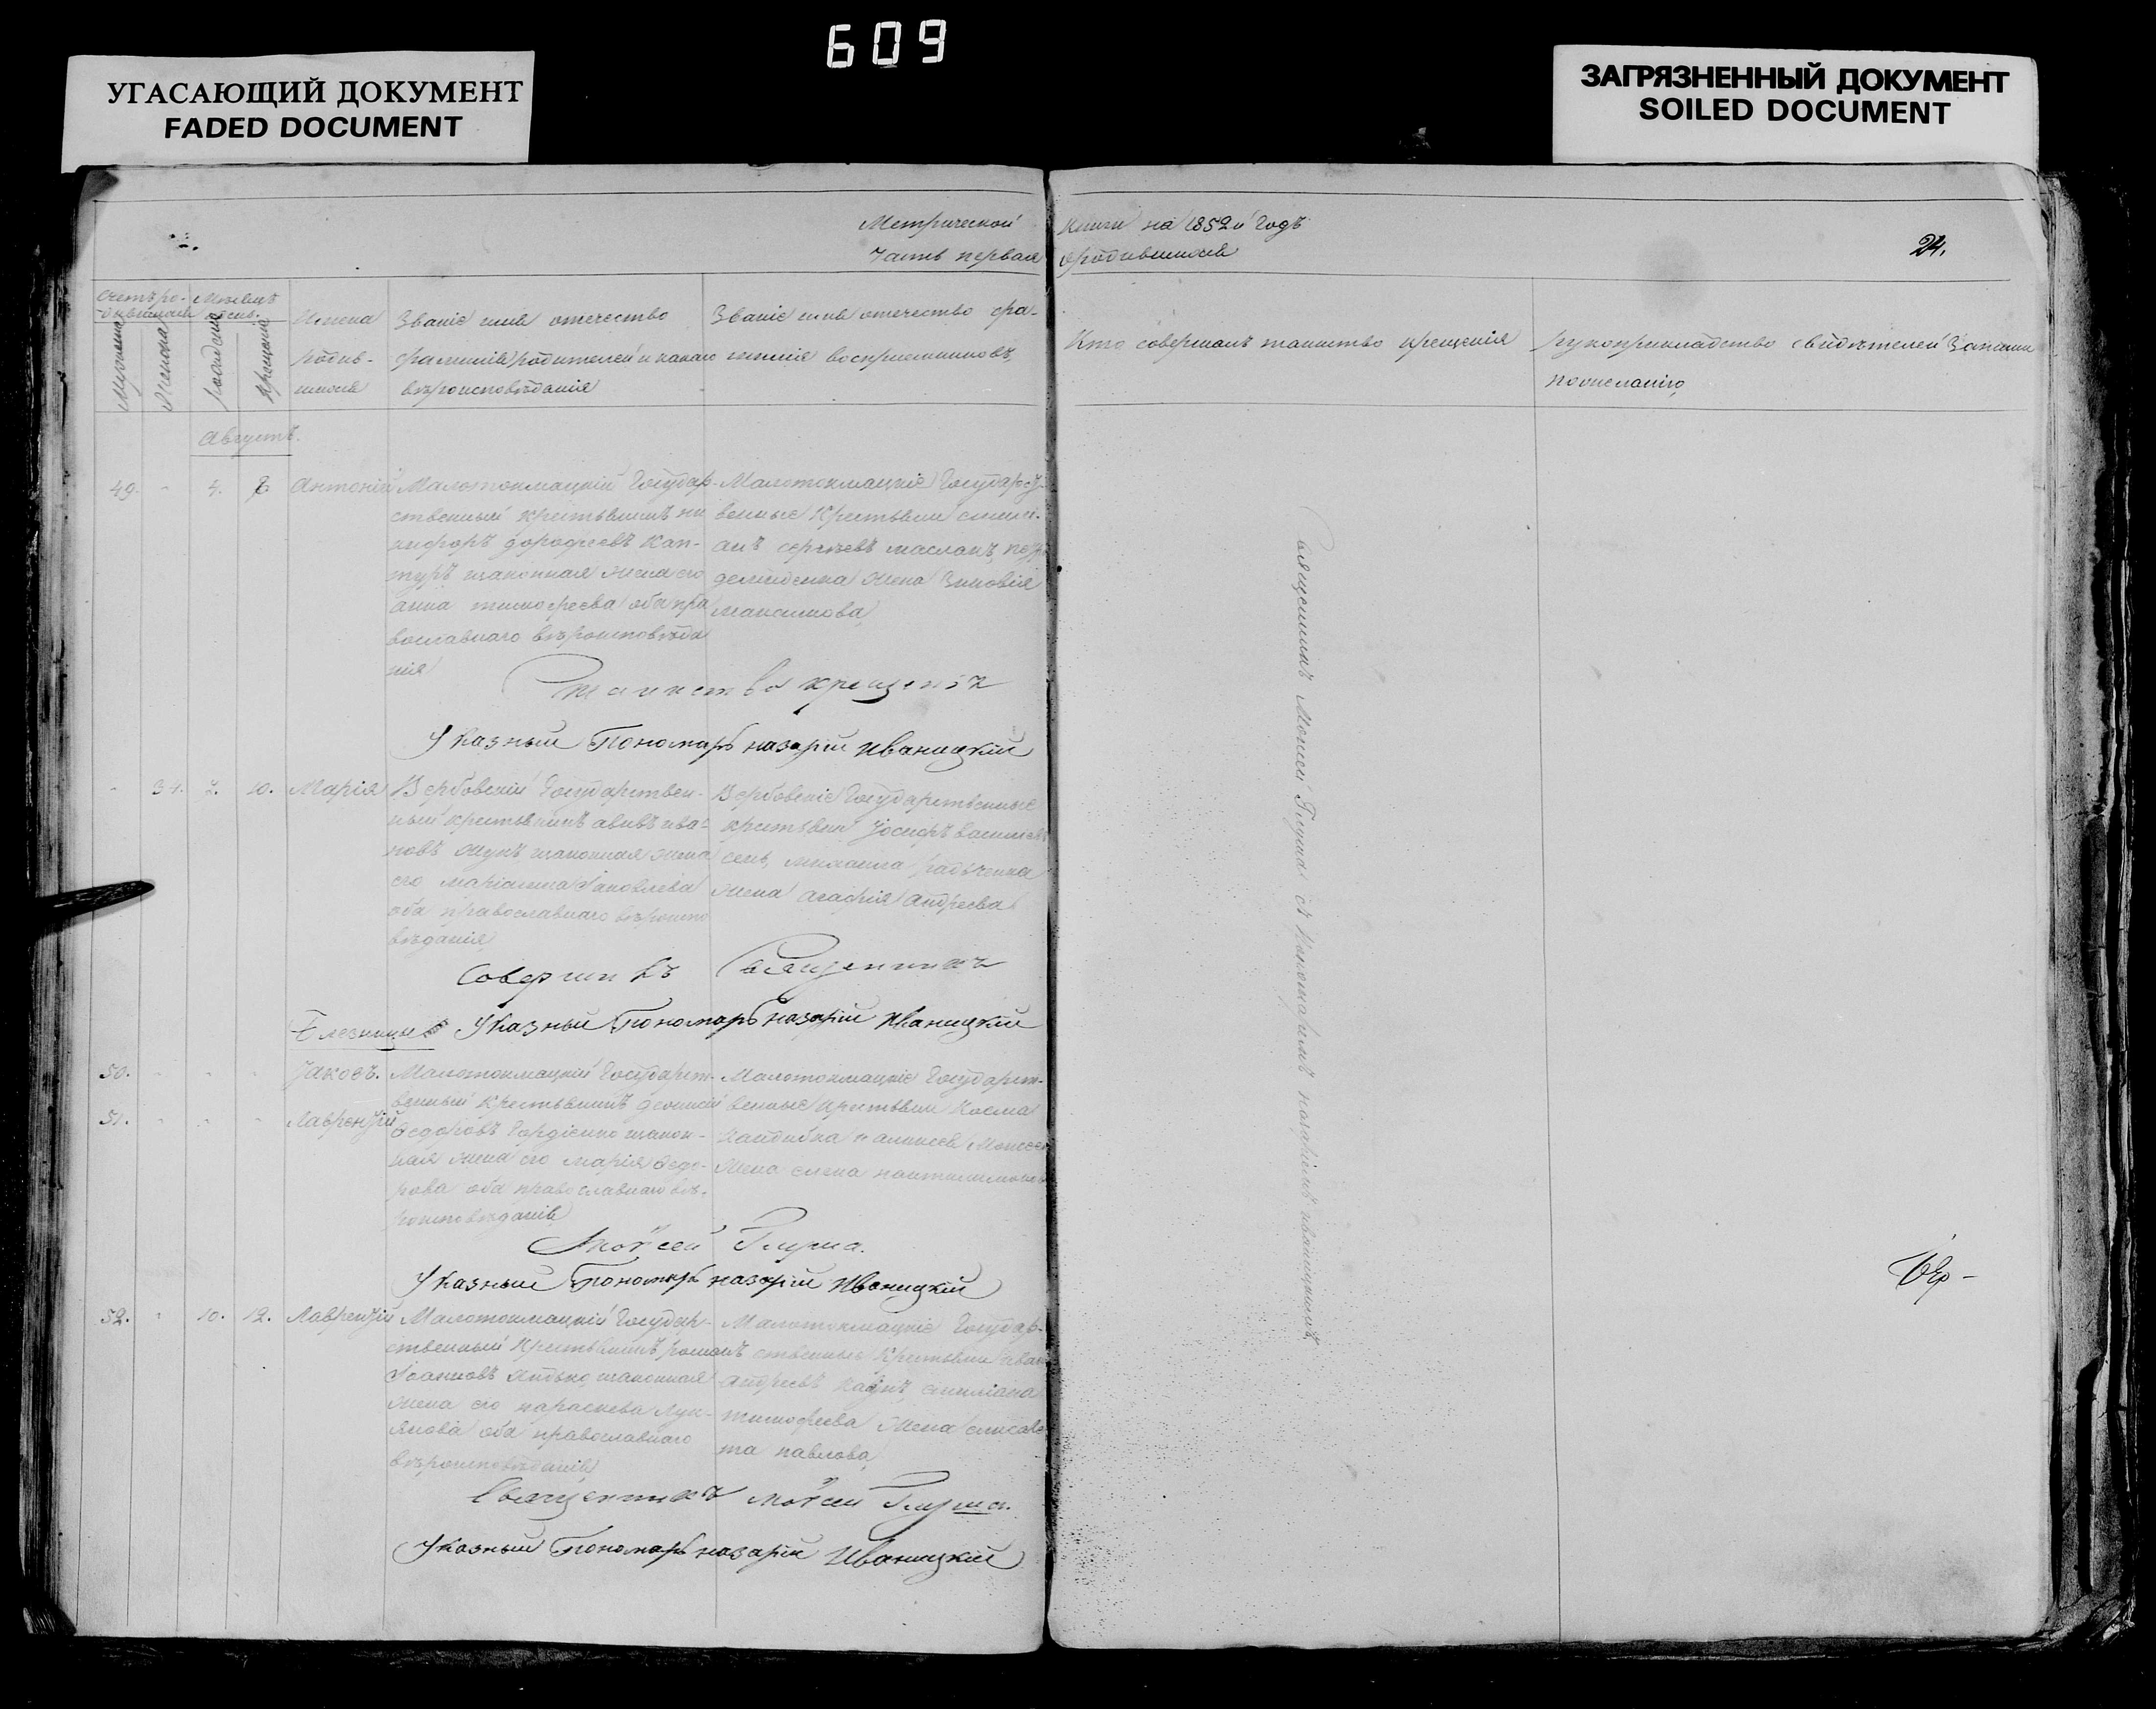 609
УГАСАЮЩИЙ ДОКУМЕНТ
FADED DOCUMENT
ЗАГРЯЗНЕННЫЙ ДОКУМЕНТ
SOILED DOCUMENT
Метрической книги на 1852й Годъ
Часть первая ородившихся
24.
Счетъ ро-
дившихся
Мужеска
Женска
Месяцъ
рожденія
крещенія
Имена
родив-
шихся
Званіе имя отечество
фамилія родителей и какаго
вѣроисповѣданія
Званіе имя отечество фа-
милія воспріемниковъ,
Кто совершалъ таинство крещенія
рукоприкладство свидѣтелей Записи
пожеланію,
Августъ.
49. - 4. 6 Антоній
Малотокмацкій Государ-
ственный крестьянинъ ни
кифоръ дорофеевъ Кап-
туръ изаконная жена его
анна тимофеева оба пра
вославнаго вѣроисповѣда
нія
Малотокмацкіе Государст-
венные Крестьяни
анъ сергѣевъ масланъ,
жена Зиновія
максимова,
Таинство крещенія
Указный Пономарь назарій Иваницкій
- 34. 7. 10. Марія
Вербовскій Государствен-
ный крестьянинъ ива-
новъ изаконная жена
его маріанна Яковлева
оба православнаго вѣроиспо
вѣданія,
Вербовскіе Государственные
крестьяни Іосифъ василіевъ
сенъ, михаила радченка
жена агафія андреева
Совершилъ Священникъ
Указный Пономарь назарій Иваницкій
Близнецы
50. - - - Іаковъ.
51. - - - Лаврентій
Малотокмацкій Государст-
венный крестьянинъ
Федоровъ Гордіенко изакон-
ная жена его марія Федо-
рова оба православнаго вѣ-
роисповѣданія
Малотокмацкіе Государст-
венные крестьяни Косма
жена елена
Мойсей Глуша.
Указный Пономарь назарій Иваницкій
52. - 10. 12. Лаврентій
Малотокмацкій Государ-
ственный Крестьянинъ романъ
Іоанновъ изаконная
жена его параскева Лук-
янова оба православнаго
вѣроисповѣданія
Малотокмацкіе Государ-
ственные Крестьяни иванъ
андреевъ
тимофеева жена елисаве
та павлова,
Священникъ Мойсей Глуша.
Указный Пономарь назарій Иваницкій
Священникъ Моисей Глуша съ Пономаремъ назаріемъ иваницкимъ,